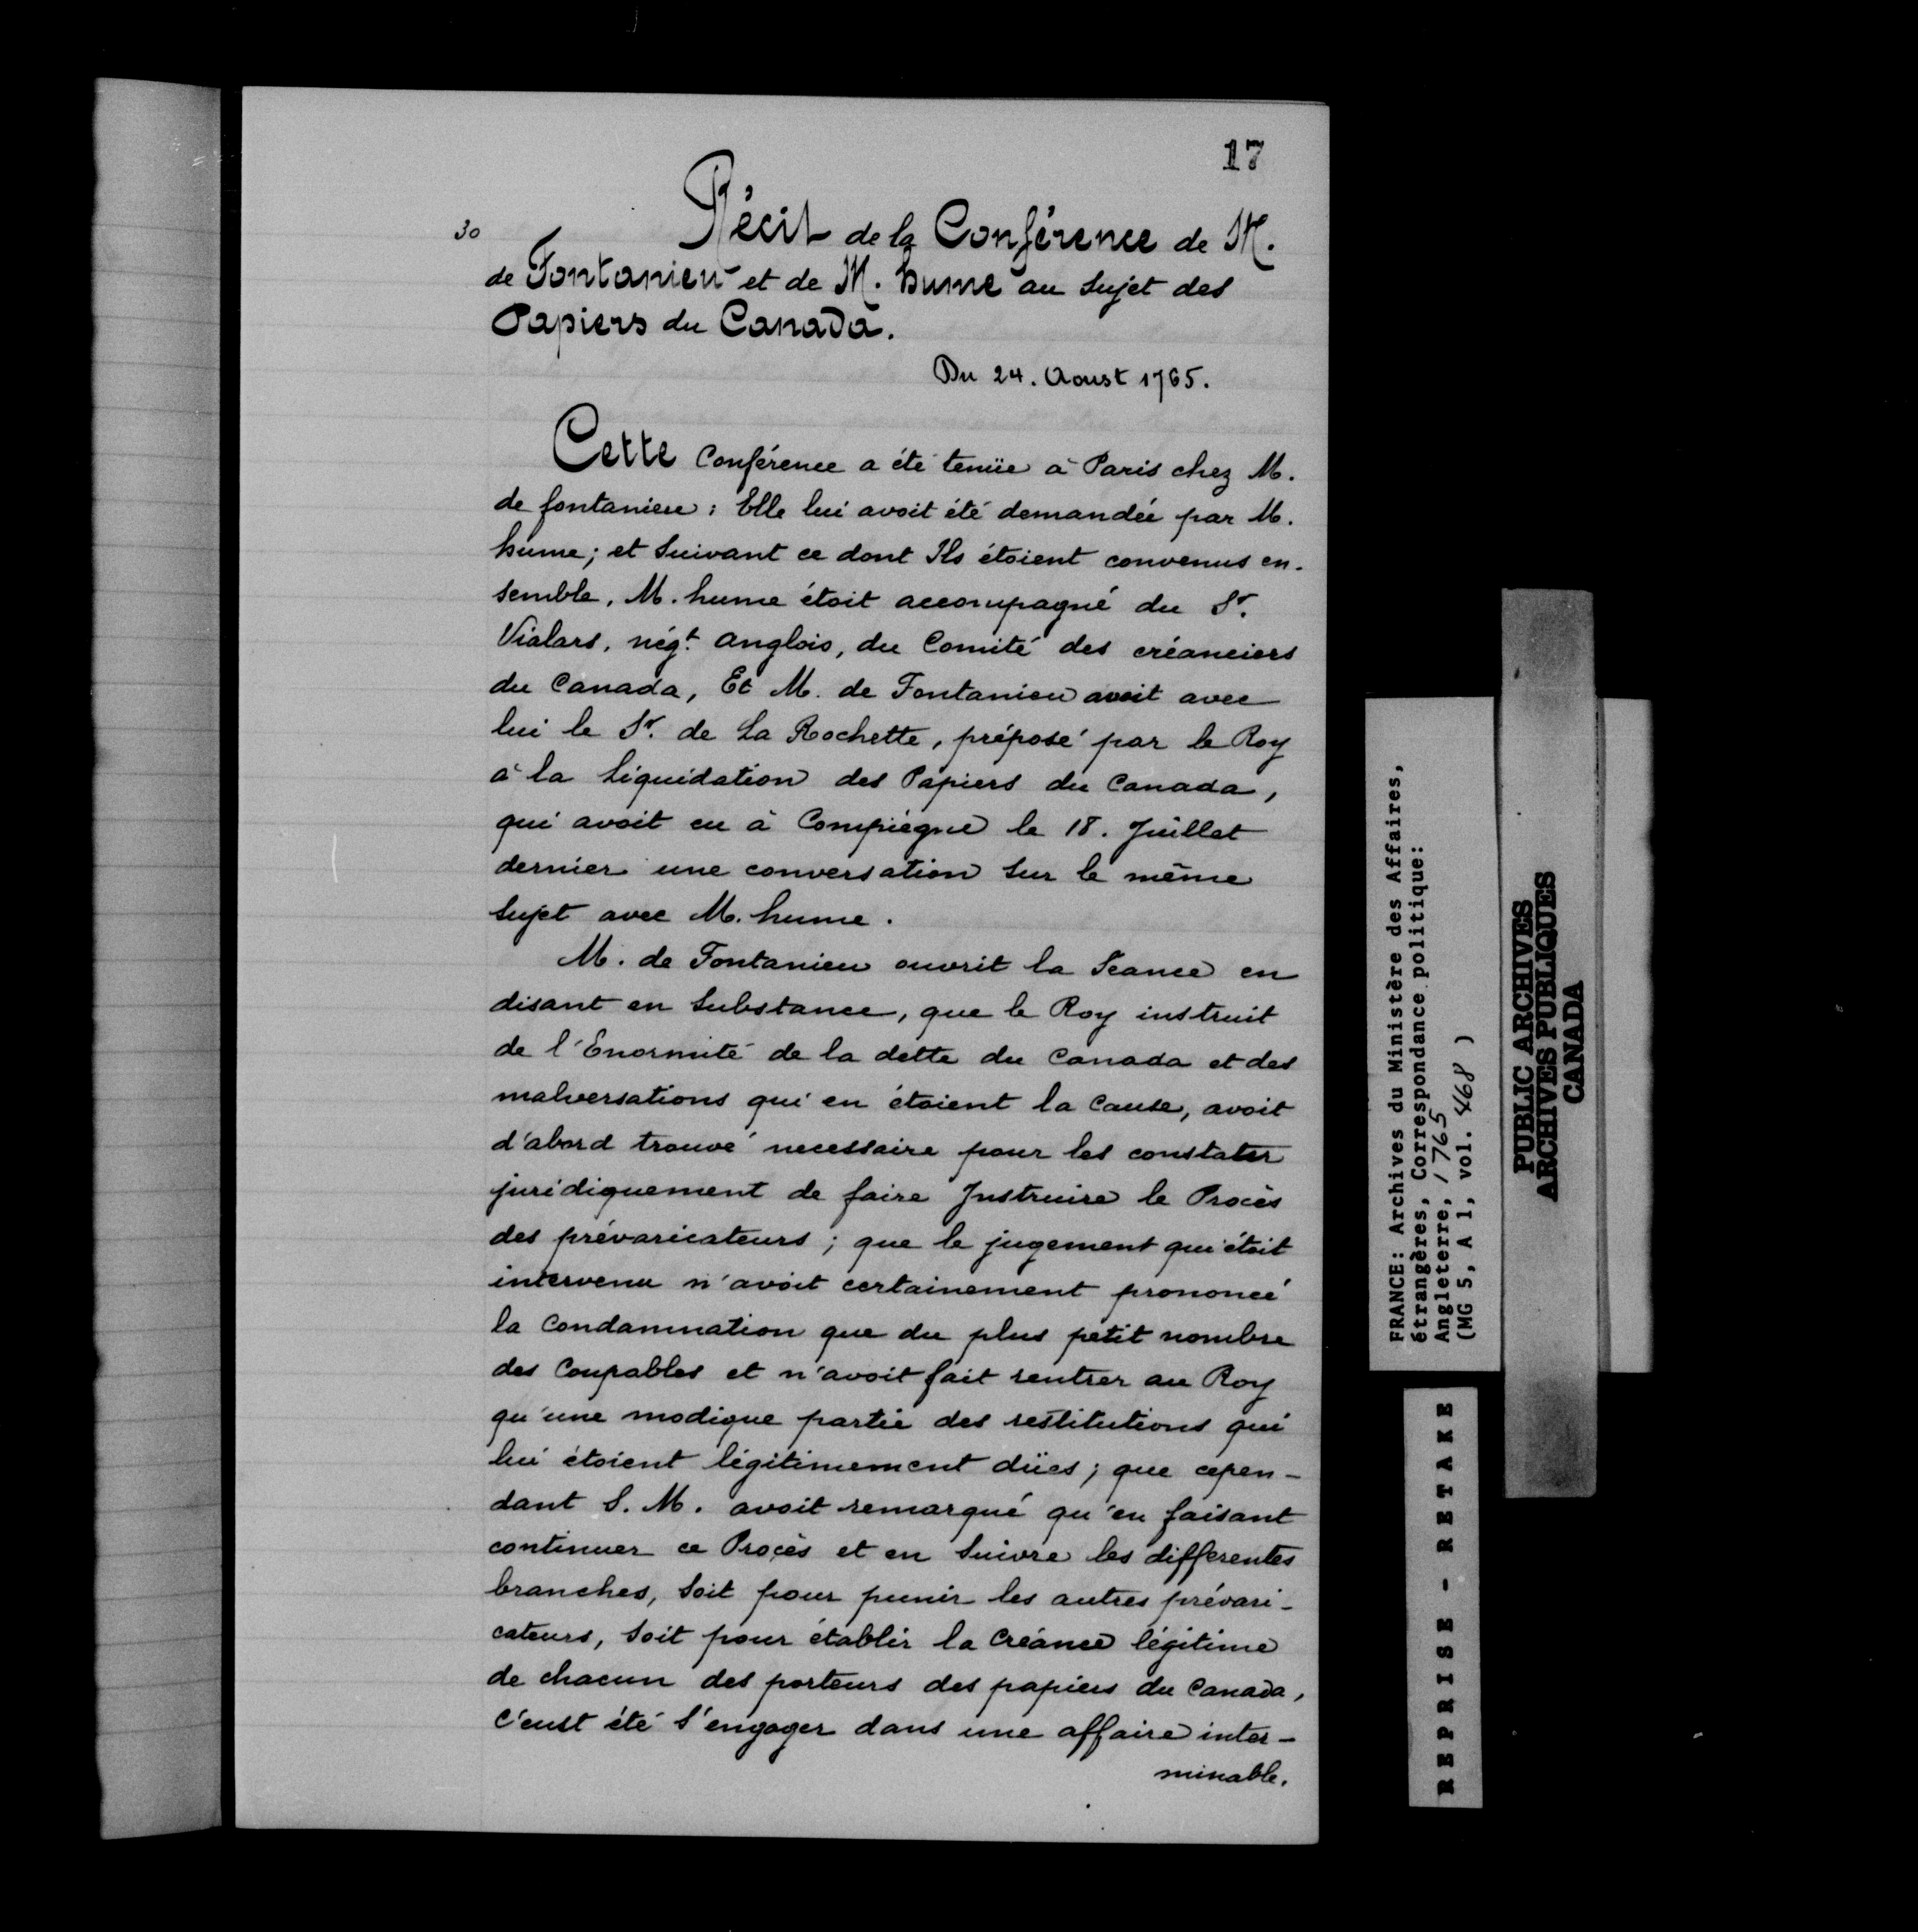 17
30
Récit de la Conférence de M.
de Fontanieu et de M. hume au sujet des
Papiers du Canada.
Du 24. Aoust 1765.
Cette Conférence a été tenüe à Paris chez M.
de fontanieu : Elle lui avoit été demandée par M.
hume ; et suivant ce dont Ils étoient convenus en-
semble, M. hume étoit accompagné du Sr.
Vialars, négt. anglois, du Comité des créanciers
du Canada, Et M. de Fontanieu avoit avec
lui le Sr. de La Rochette, préposé par le Roy
à la liquidation des Papiers du Canada,
qui avoit eu à Compiégne le 18. Juillet
dernier une conversation sur le même
sujet avec M. hume.
M. de Fontanieu ouvrit la Seance en
disant en substance, que le Roy instruit
de l'Enormité de la dette du Canada et des
malversations qui en étoient la cause, avoit
d'abord trouvé necessaire pour les constater
juridiquement de faire Instruire le Procès
des prévaricateurs ; que le jugement qui étoit
intervenu n'avoit certainement prononcé
la Condamnation que du plus petit nombre
des Coupables et n'avoit fait rentrer au Roy
qu'une modique partie des restitutions qui
lui étoient légitimement dües ; que cepen-
dant S. M. avoit remarqué qu'en faisant
continuer ce Procès et en suivre les differentes
branches, soit pour punir les autres prévari-
cateurs, soit pour établir la Créance légitime
de chacun des porteurs des papiers du Canada,
c'eust été s'engager dans une affaire inter-
minable.
FRANCE: Archives du Ministère des Affaires,
étrangères, Correspondance politique:
Angleterre, 1765
(MG 5, A 1, vol. 468 )
PUBLIC ARCHIVES
ARCHIVES PUBLIQUES
CANADA
REPRISE - RETAKE